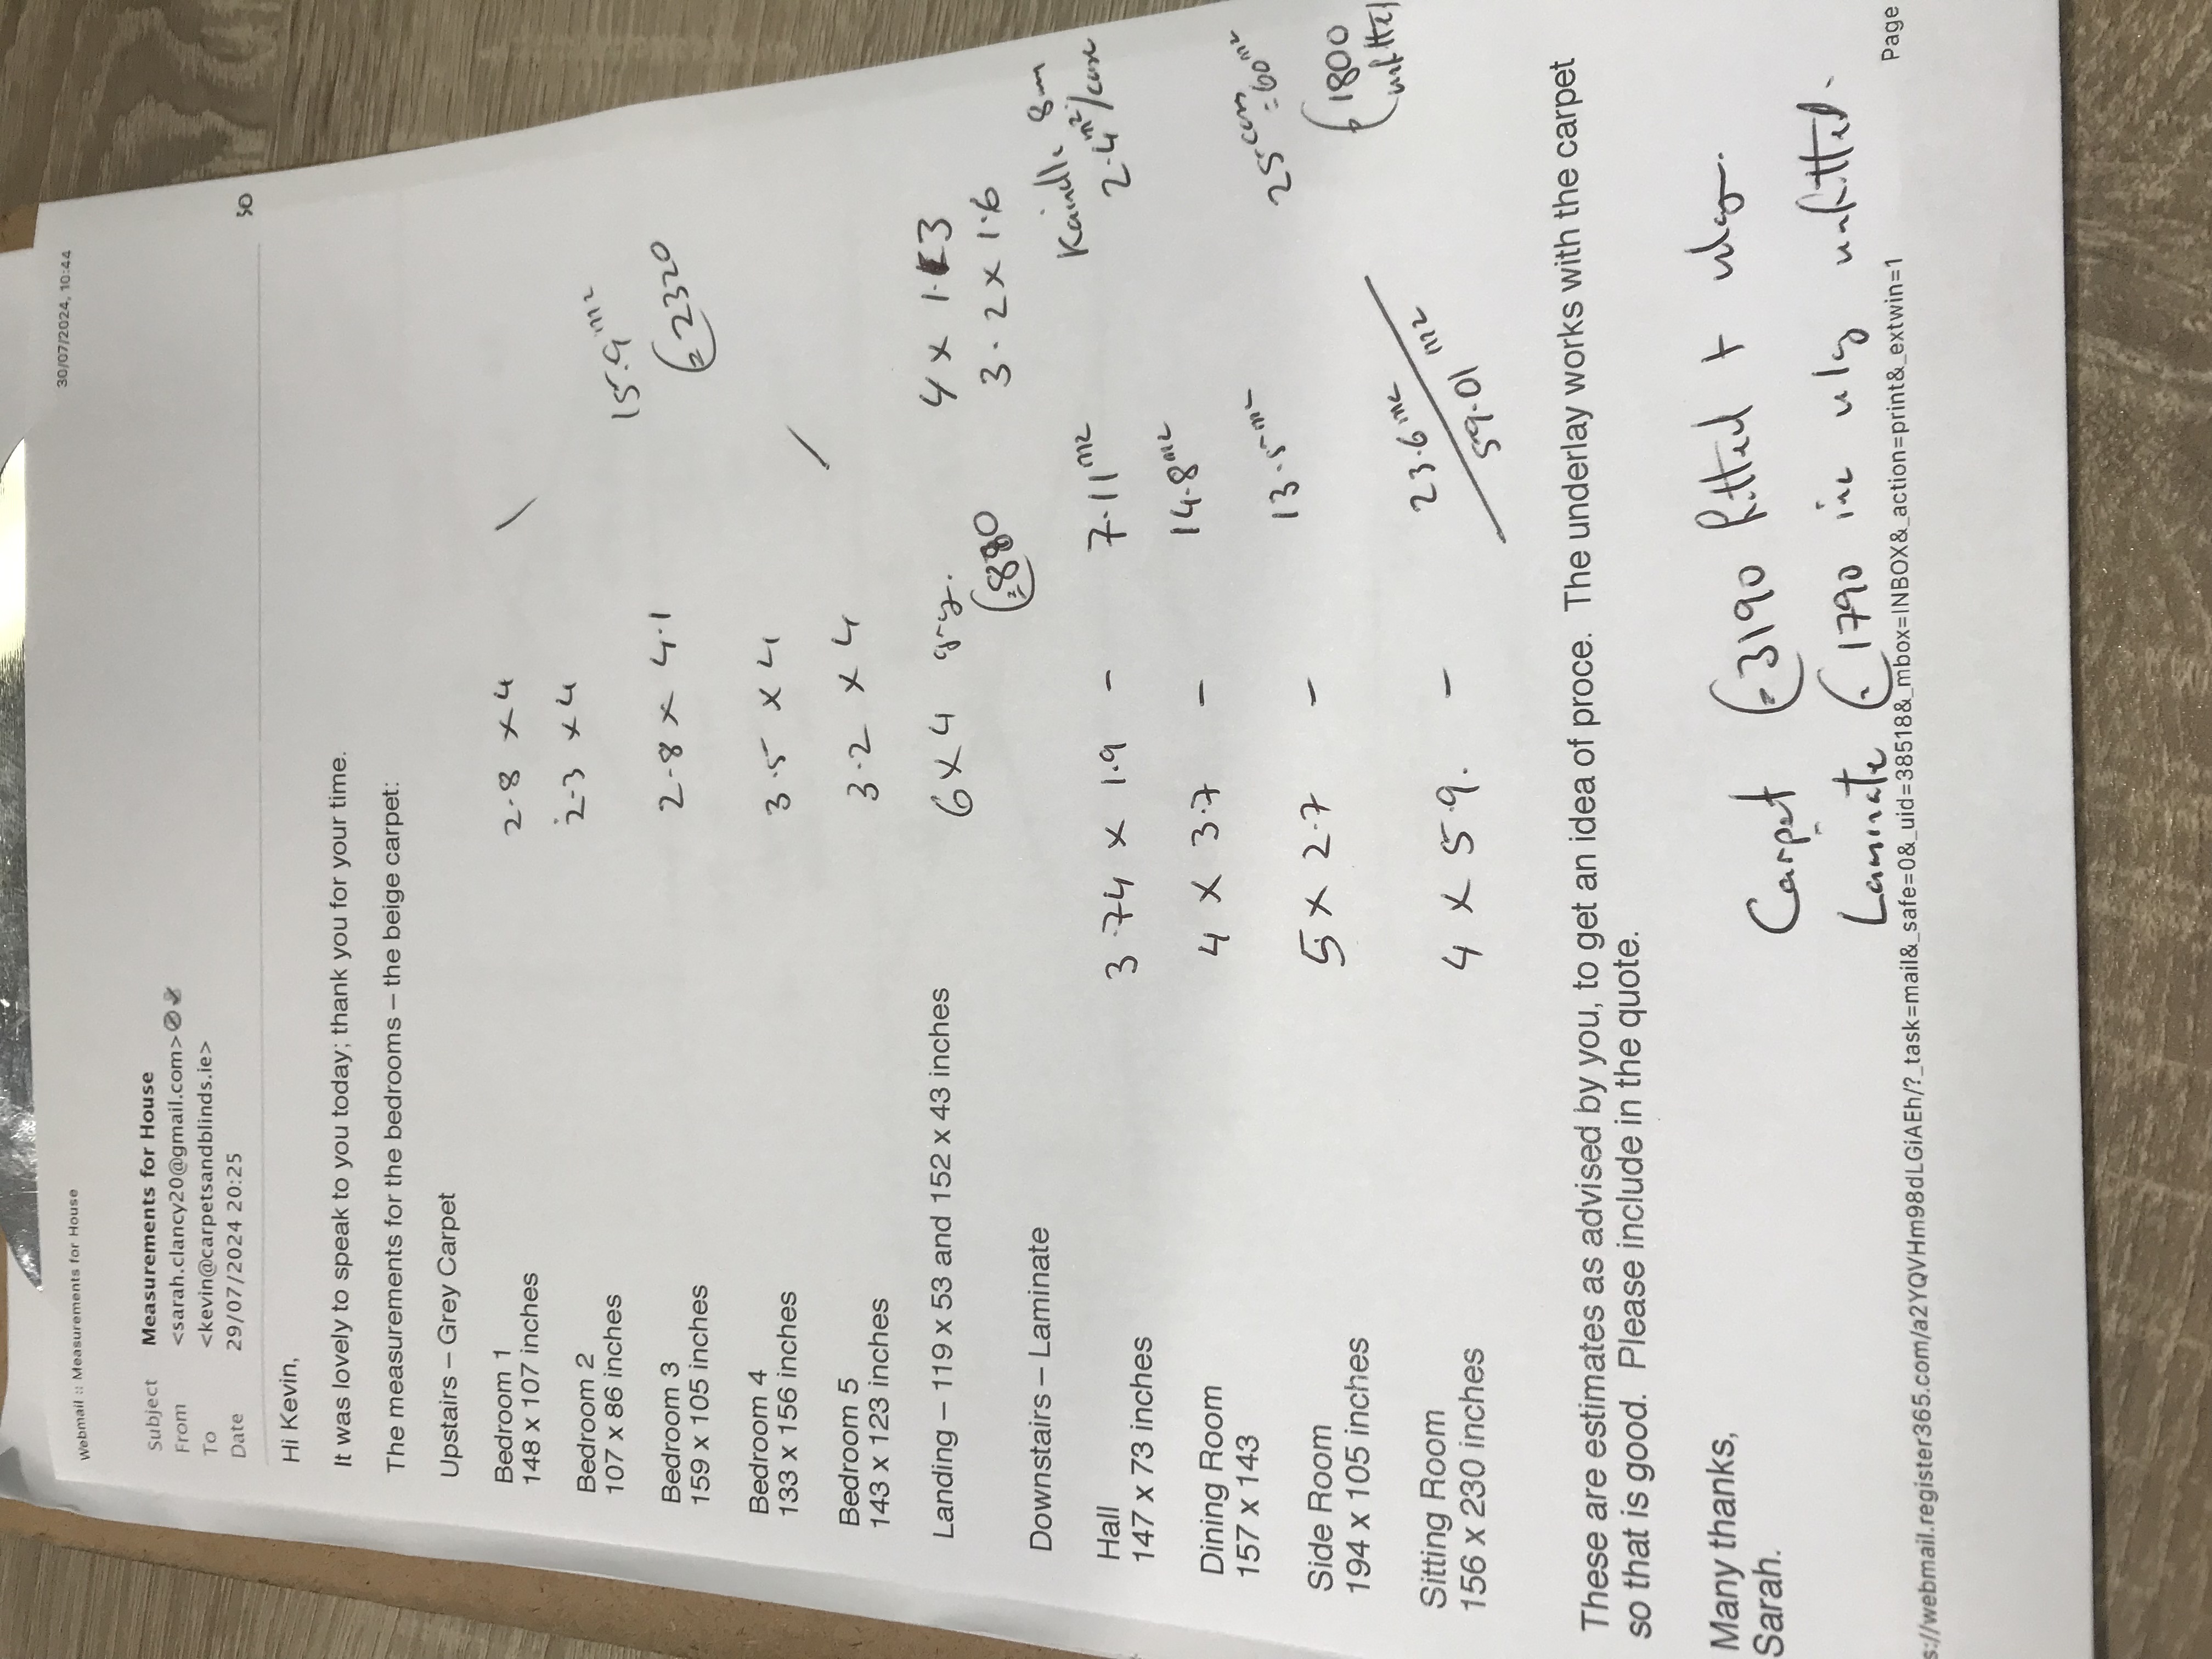 Webmail :: Measurements for House 30/07/2024, 10:44
Subject Measurements for House
From <sarah.clancy20@gmail.com>
To <kevin@carpetsandblinds.ie>
Date 29/07/2024 20:25
Hi Kevin,
It was lovely to speak to you today; thank you for your time.
The measurements for the bedrooms – the beige carpet:
Upstairs – Grey Carpet
Bedroom 1
148 x 107 inches 2.8 x 4
Bedroom 2 2.3 x 4
107 x 86 inches 15.9 m2
Bedroom 3 2.8 x 4.1
159 x 105 inches 2320
Bedroom 4 3.5 x 4
133 x 156 inches
Bedroom 5 3.2 x 4
143 x 123 inches
Landing – 119 x 53 and 152 x 43 inches 6 x 4 4 x 1.3
880 3.2 x 1.6
Downstairs – Laminate 8m
Hall 3.74 x 1.9 – 7.11 m2 2.4 m2/
147 x 73 inches
Dining Room 4 x 3.7 – 14.8 m2
157 x 143
Side Room 5 x 2.7 – 13.5 m2 25 = 60 m2
194 x 105 inches 1800
Sitting Room 4 x 5.9. – 23.6 m2
156 x 230 inches 59.01 m2
These are estimates as advised by you, to get an idea of proce. The underlay works with the carpet
so that is good. Please include in the quote.
Many thanks, Carpet 3190 fitted +
Sarah.
Laminate 1790 inc ulay unfitted.
s://webmail.register365.com/a2YQVHm98dLGiAEh/?_task=mail&_safe=0&_uid=38518&_mbox=INBOX&_action=print&_extwin=1 Page